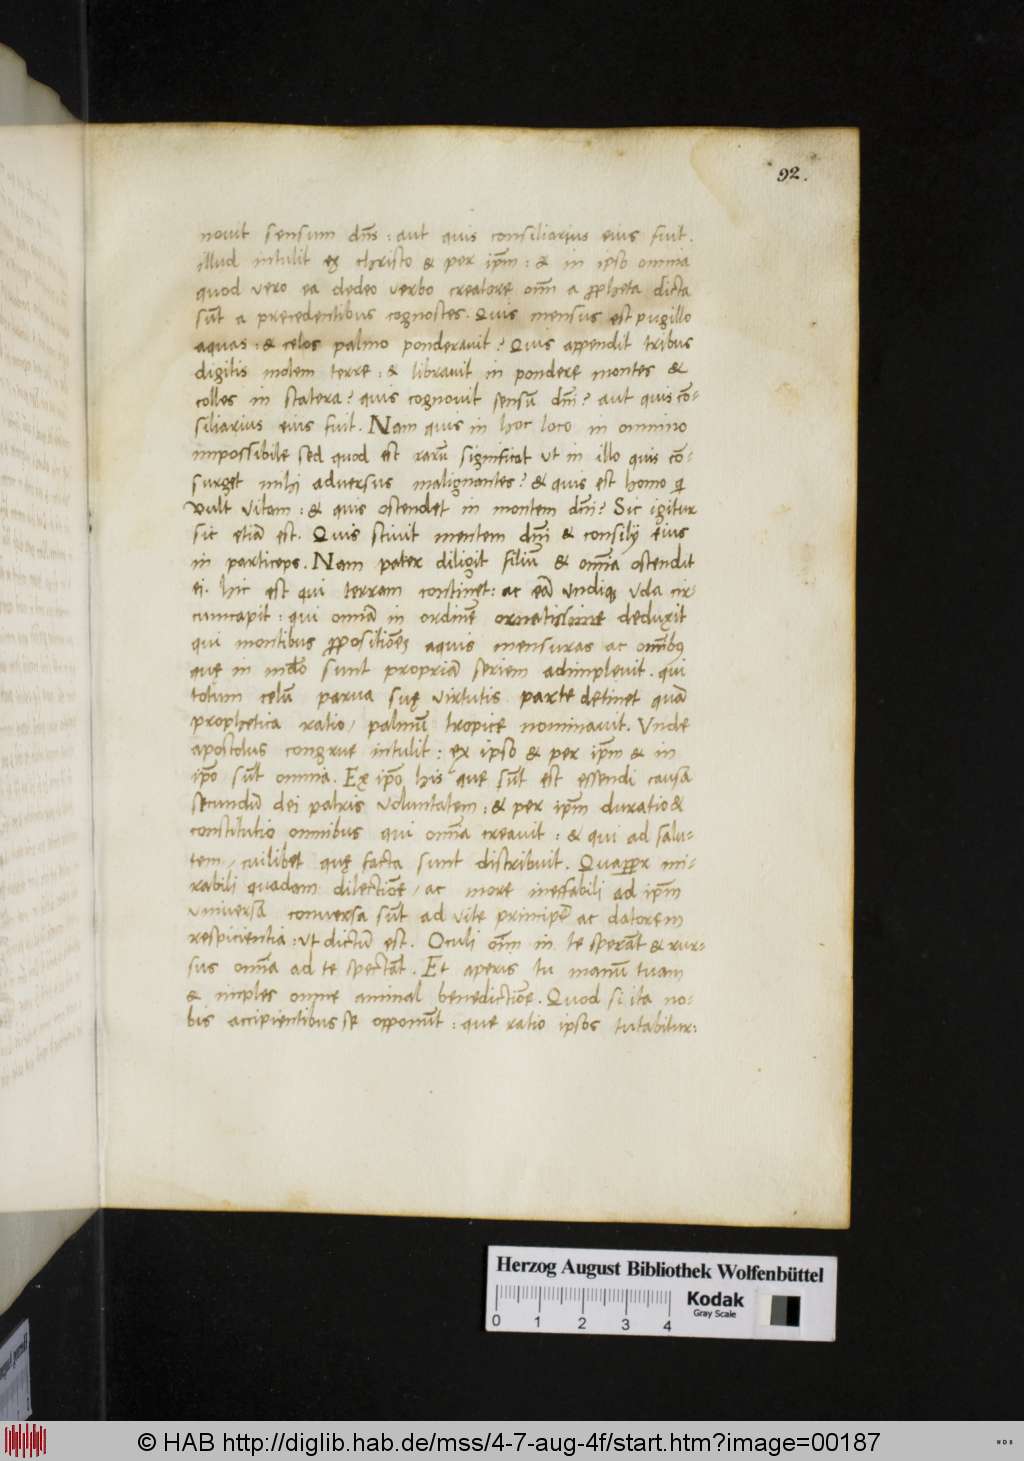 92.
novit sensum dn̄s : aut quis consiliarius eius fuit.
illud intulit ex christo & per ip̄m : & in ipso omnia
quod vero ea dedeo verbo creatore om̄ a propheta dicta
sūt a precedentibus cognostes. Quis mensus est pugillo
aquas : & celos palmo ponderavit? Quis appendit tribus
digitis molem terre : & libravit in pondere montes &
colles in statera? quis cognovit sensū dn̄i? aut quis cō-
siliarius eius fuit. Nam quis in hoc loco in omnino
impossibile sed quod est rarū significat ut in illo quis cō-
surget mihi adversus malignantes? & quis est homo qi
vult vitam : & quis ostendet in montem dn̄i? Sic igitur
sic etiā est. Quis scivit mentem dn̄i & consily eius
in particeps. Nam pater diligit filiū & om̄ia ostendit
ei. hic est qui terram continet : ac eā undiq uda cir-
cumcapit : qui omnia in ordinē ornatissime deduxit
qui montibus propositiōes aquis mensuras ac om̄ibq
quę in mūdo sunt propriā seriem adimplevit. qui
totum celū parva suę virtutis parte detinet quā
prophetica ratio / palmū tropice nominavit. Unde
apostolus congrue intulit : ex ipso & per ip̄m & in
ip̄o sūt omnia. Ex ip̄o his que sūt est essendi causa
secundū dei patris voluntatem : & per ip̄m duratio &
constitutio omnibus qui om̄ia creavit : & qui ad salu-
tem / cuilibet quę facta sunt distribuit. Quappr mi-
rabili quadam dilectiōe / ac more ineffabili ad ip̄m
universa conversa sūt ad vite principē ac datorem
respicientia : ut dictū est. Oculi om̄ in te sperāt & rur-
sus om̄ia ad te spectāt. Et aperis tu manū tuam
& imples omne animal benedictiōe. Quod si ita no-
bis accipientibus se opponūt : que ratio ipsos tutabitur :
Herzog August Bibliothek Wolfenbüttel
0 1 2 3 4
Kodak
Gray Scale
© HAB http://diglib.hab.de/mss/4-7-aug-4f/start.htm?image=00187